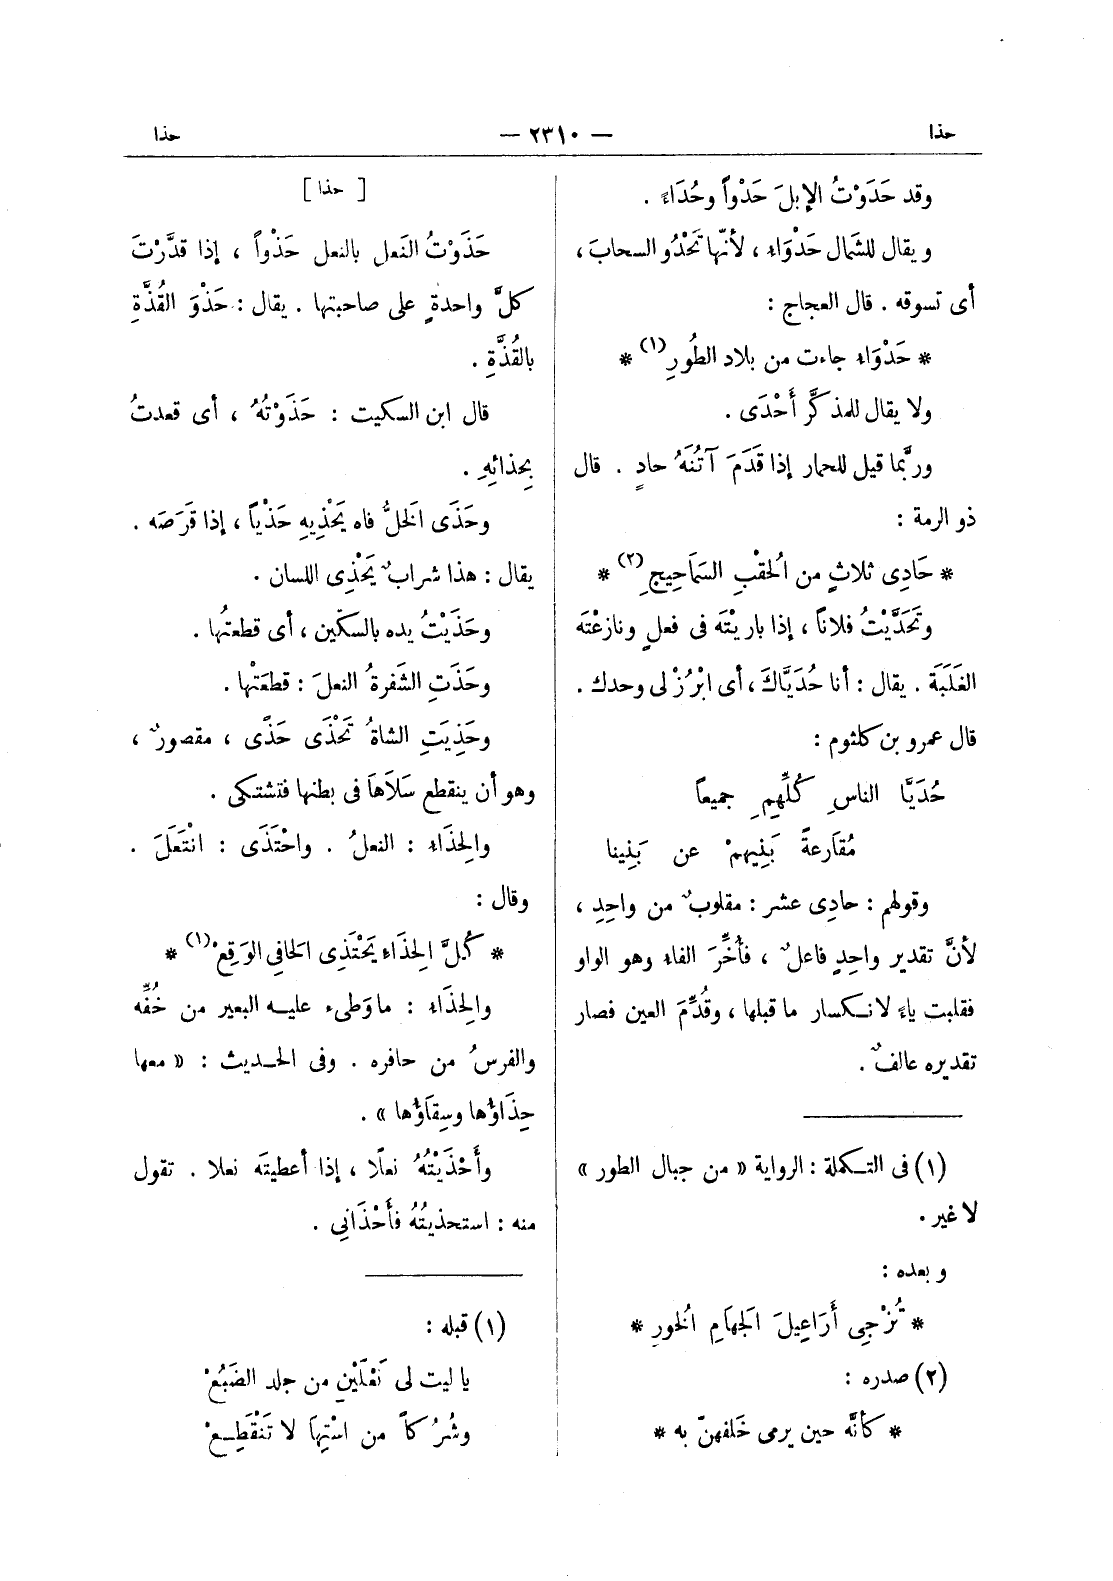 حذا — ٢٣١٠ — حذا
وقد حَدَوْتُ الإبلَ حَدْواً وحُدَاءً .
ويقال للشمال حَدْوَاء ، لأنّها تَحْدُو السحابَ ،
أى تسوقه . قال العجاج :
* حَدْوَاء جاءت من بلاد الطُورِ (١) *
ولا يقال للمذكَّر أَحْدَى .
وربَّما قيل للحمار إذا قَدَمَ آتُنَهُ حادٍ . قال
ذو الرمة :
* حَادِى ثلاثٍ من الْحقْبِ السَمَاحِيجِ (٢) *
وتَحَدَّيْتُ فلاناً ، إذا باريْتَه فى فعلٍ ونازعْتَه
الغَلَبَةَ . يقال : أنا حُدَيَّاكَ ، أى ابْرُزْ لى وحدك .
قال عمرو بن كلثوم :
حُدَيَّا الناسِ كُلِّهِمِ جميعاً
مُقَارعةً بَنِيهمْ عن بَنِينا
وقولهم : حادِى عشر : مقلوبٌ من واحِدِ ،
لأنَّ تقدير واحِدٍ فاعلٌ ، فأُخِّرَ الفاء وهو الواو
فقلبت ياءً لانكسار ما قبلها ، وقُدِّمَ العين فصار
تقديره عالفٌ .
(١) فى التكملة : الرواية « من جبال الطور »
لا غير .
وبعده :
* تُزْجِى أَرَاعِيلَ الْجهَامِ الْخورِ *
(٢) صدره :
* كأنَّه حين يرمى خَلفهنّ به *
[ حذا ]
حَذَوْتُ النَعل بالنعل حَذْواً ، إذا قدَّرْتَ
كلَّ واحدةٍ على صاحبتها . يقال : حَذْوَ القُذَّةِ
بالقُذَّةِ .
قال ابن السكيت : حَذَوْتُهُ ، أى قعدتُ
بِحذائِهِ .
وحَذَى الْخلُّ فاه يَحْذِيهِ حَذْياً ، إذا قَرَصَه .
يقال : هذا شرابٌ يَحْذِى اللسان .
وحَذَيْتُ يده بالسكّين ، أى قطعتُها .
وحَذَتِ الشَفرةُ النعلَ : قطعَتْها .
وحَذِيَتِ الشاةُ تَحْذَى حَذًى ، مقصورٌ ،
وهو أن ينقطع سَلَاهَا فى بطنها فتشتكى .
والْحِذَاء : النعلُ . واحْتَذَى : انْتَعَلَ .
وقال :
* كُلَّ الْحِذَاءِ يَحْتَذِى الْحافِى الوَقِعْ (١) *
والْحِذَاء : ما وَطىء عليه البعير من خُفِّه
والفرسُ من حافره . وفى الحديث : « معها
حِذَاؤُها وسِقَاؤُها » .
وأَحْذَيْتُهُ نعلًا ، إذا أعطيتَه نعلا . تقول
منه : استحذيتُهُ فأَحْذَانِى .
(١) قبله :
يا ليت لى نَعْلَيْنِ من جلد الضَبُعْ
وشُرُكاً من اسْتِهَا لا تَنْقَطِعْ